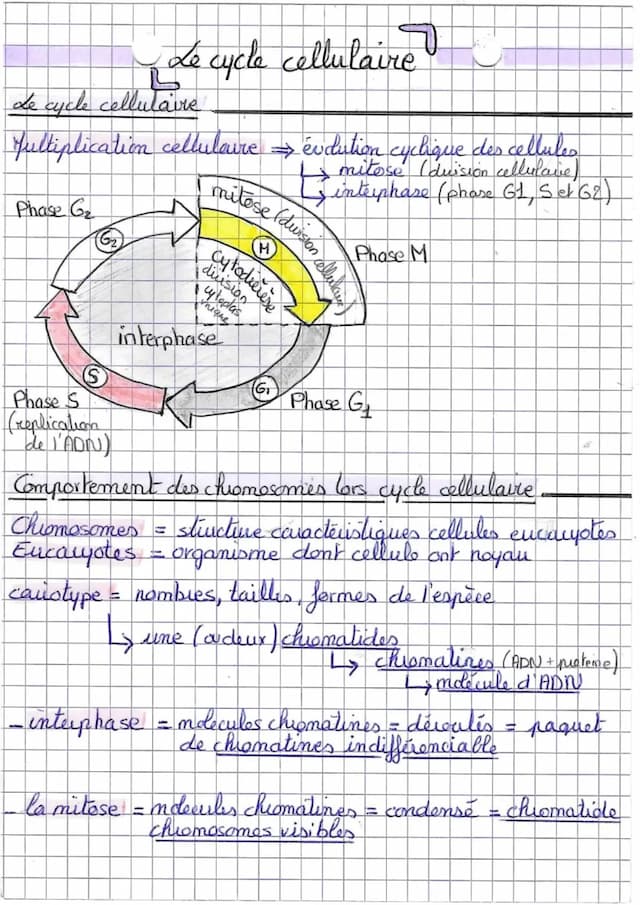 Le cycle cellulaire
Le cycle cellulaire
Multiplication cellulaire ⇒ évolution cyclique des cellules
↳ mitose (division cellulaire)
↳ interphase (phase G1, S et G2)
Phase G2
G2
mitose (division cellulaire)
M
Phase M
cytodiérèse
division
cytoplas
mique
interphase
S
G1
Phase S
(replication
de l'ADN)
Phase G1
Comportement des chromosomes lors cycle cellulaire
Chromosomes = structure caractéristiques cellules eucaryotes
Eucaryotes = organisme dont cellule ont noyau
cariotype = nombres, tailles, formes de l'espèce
↳ une (ou deux) chromatides
↳ chromatines (ADN + proteine)
↳ molécule d'ADN
- interphase = molécules chromatines = déroulés = paquet
de chromatines indifférenciable
- la mitose = molecules chromatines = condensé = chromatide
chromosomes visibles